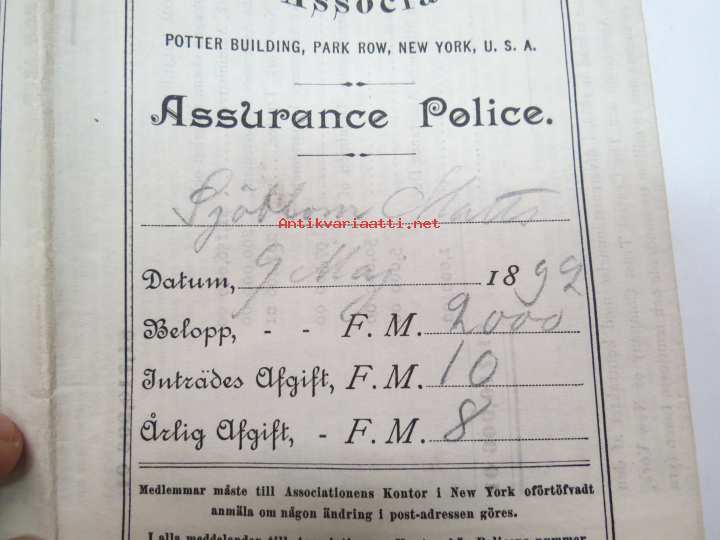 Associa
POTTER BUILDING, PARK ROW, NEW YORK, U. S. A.
Assurance Police.
Sjöblom Matts
Antikvariaatti.net
Datum, 9 Maj 1892
Belopp, - - F. M. 2000
Inträdes Afgift, F. M. 10
Årlig Afgift, - F. M. 8
Medlemmar måste till Associationens Kontor i New York oförtöfvadt
anmäla om någon ändring i post-adressen göres.
I alla meddelanden till